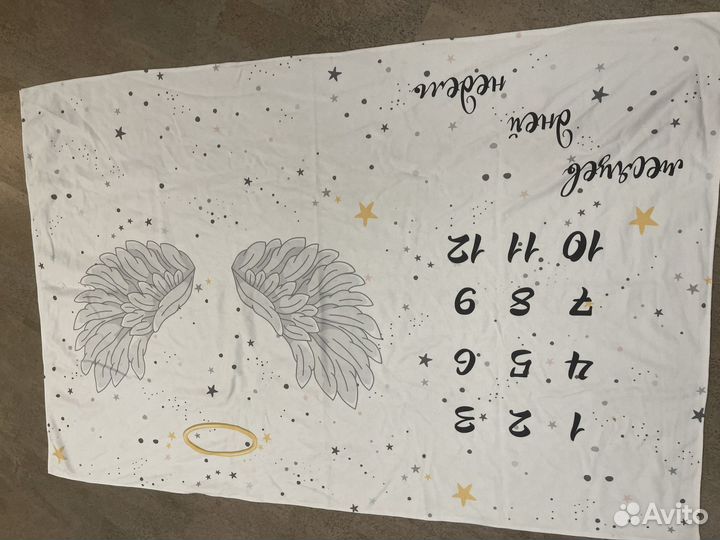 1 2 3
4 5 6
7 8 9
10 11 12
месяцев
дней
недель
Avito